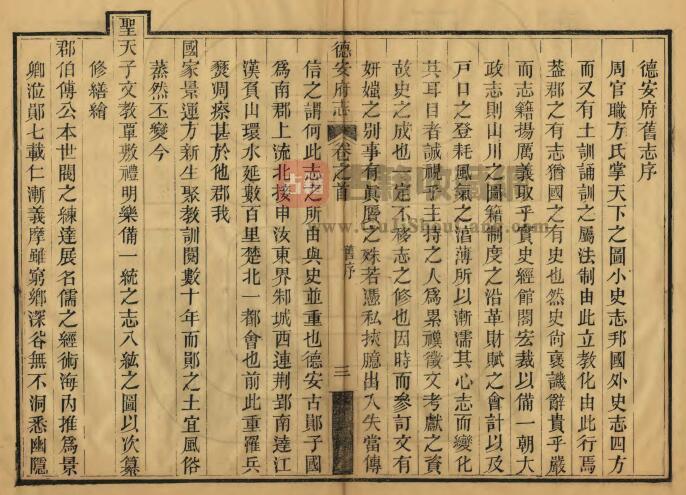 德安府舊志序
周官職方氏掌天下之圖小史志邦國外史志四方
而又有土訓誦訓之屬法制由此立教化由此行焉
葢郡之有志猶國之有史也然史尚褒譏辭貴乎嚴
而志籍揚厲義取乎實史經館閣宏裁以備一朝大
政志則山川之圖籍制度之沿革財賦之會計以及
戸口之登耗風氣之淳薄所以漸濡其心志而變化
其耳目者誠視乎主持之人為累禩徵文考獻之資
故史之成也一定不移志之修也因時而參訂文有
妍媸之别事有眞贋之殊若憑私挾臆出入失當傳
德安府志
卷之首
舊序
三
信之謂何此志之所由與史並重也德安古鄖子國
為南郡上流北接申汝東界邾城西連荆郢南達江
漢負山環水延數百里楚北一都會也前此重罹兵
燹凋瘵甚於他郡我
國家景運方新生聚教訓閱數十年而鄖之土宜風俗
蒸然丕變今
聖天子文教覃敷禮明樂備一統之志八紘之圖以次纂
修繕繪
郡伯傅公本世閥之練達展名儒之經術海内推為景
卿涖鄖七載仁漸義摩雖窮鄉深谷無不洞悉幽隱
古籍收藏網
www.GuJiShouCang.com